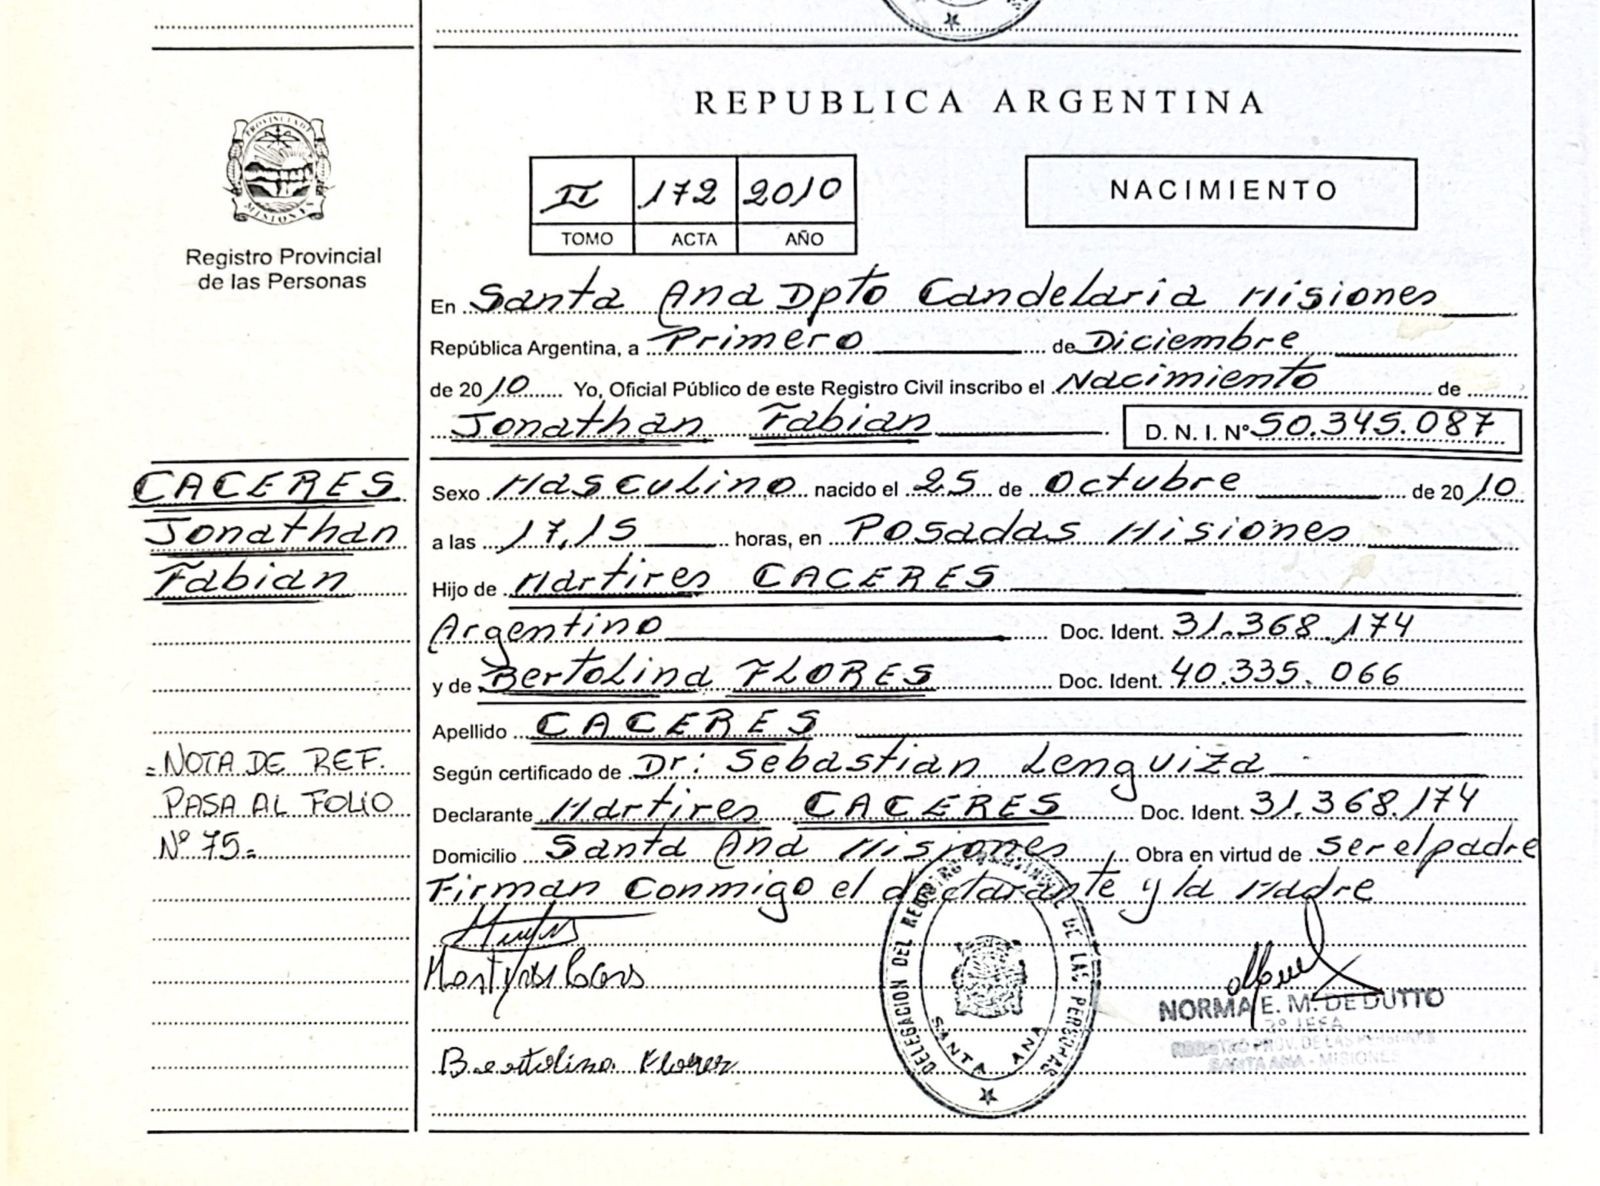 REPUBLICA ARGENTINA
PROVINCIA DE
MISIONES
Registro Provincial
de las Personas
II 172 2010
TOMO ACTA AÑO
NACIMIENTO
En Santa Ana Dpto Candelaria Misiones
República Argentina, a Primero de Diciembre
de 2010 Yo, Oficial Público de este Registro Civil inscribo el Nacimiento de
Jonathan Fabian D. N. I. N° 50.345.087
CACERES
Jonathan
Fabian
Sexo Masculino nacido el 25 de Octubre de 2010
a las 17,15 horas, en Posadas Misiones
Hijo de Martires CACERES
Argentino Doc. Ident. 31.368.174
y de Bertolina FLORES Doc. Ident. 40.335.066
Apellido CACERES
Según certificado de Dr: Sebastian Lenguiza
Declarante Martires CACERES Doc. Ident. 31.368.174
Domicilio Santa Ana Misiones, Obra en virtud de ser el padre
Firman conmigo el declarante y la Madre
=NOTA DE REF.
PASA AL FOLIO
N° 75=
Bertolina Flores
DELEGACION DEL REGISTRO PROVINCIAL DE LAS PERSONAS
SANTA ANA
NORMA E. M. DE DUTTO
2° JEFA
REGISTRO PROV. DE LAS PERSONAS
SANTA ANA - MISIONES